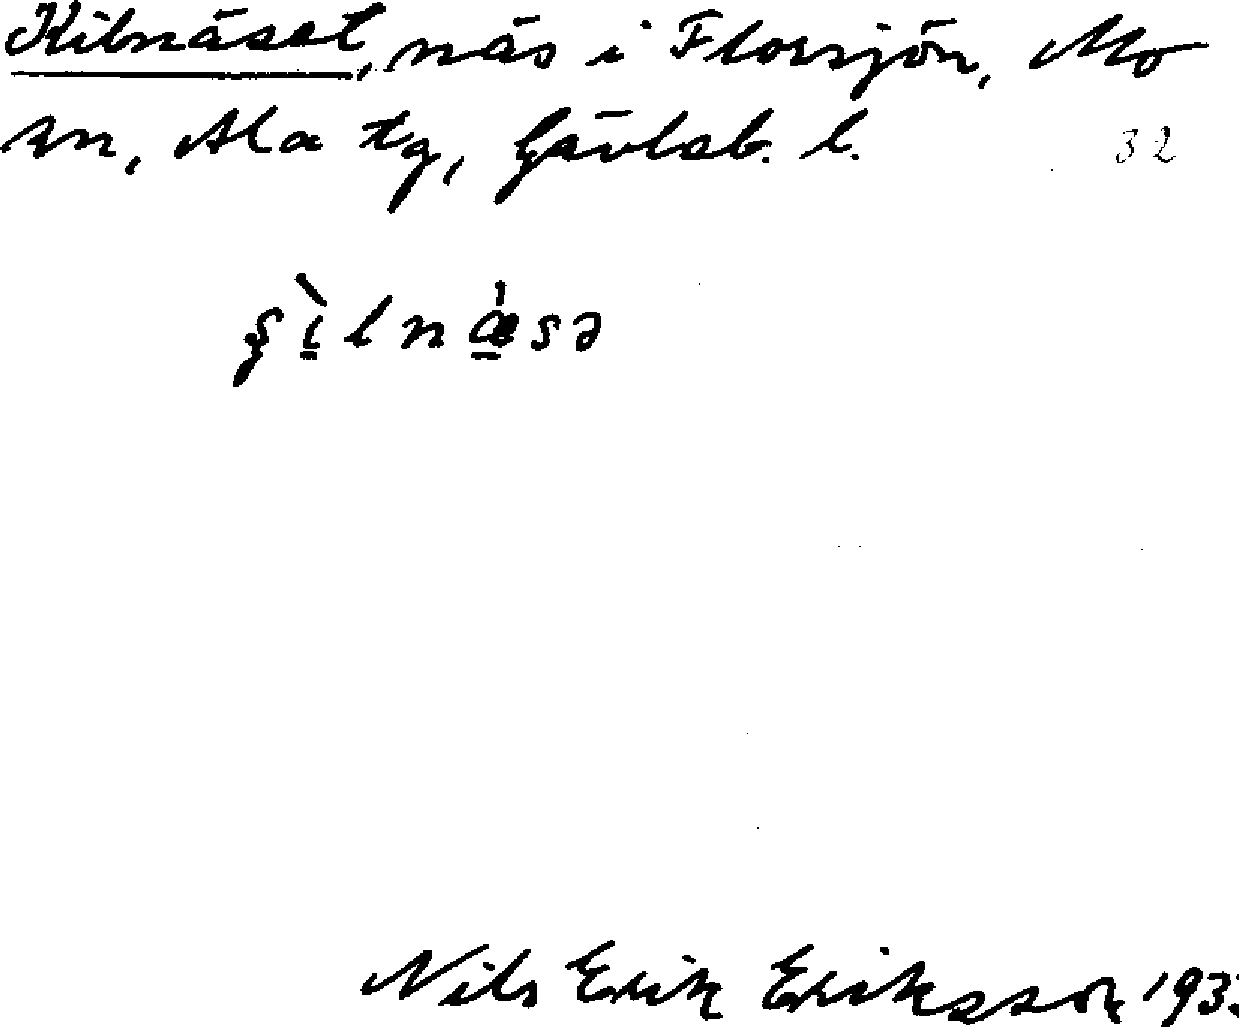 Kilnäset, näs i Florsjön, Mo
sn, Ala tg, Gävleb. l. 32
Nils Erik Eriksson 193